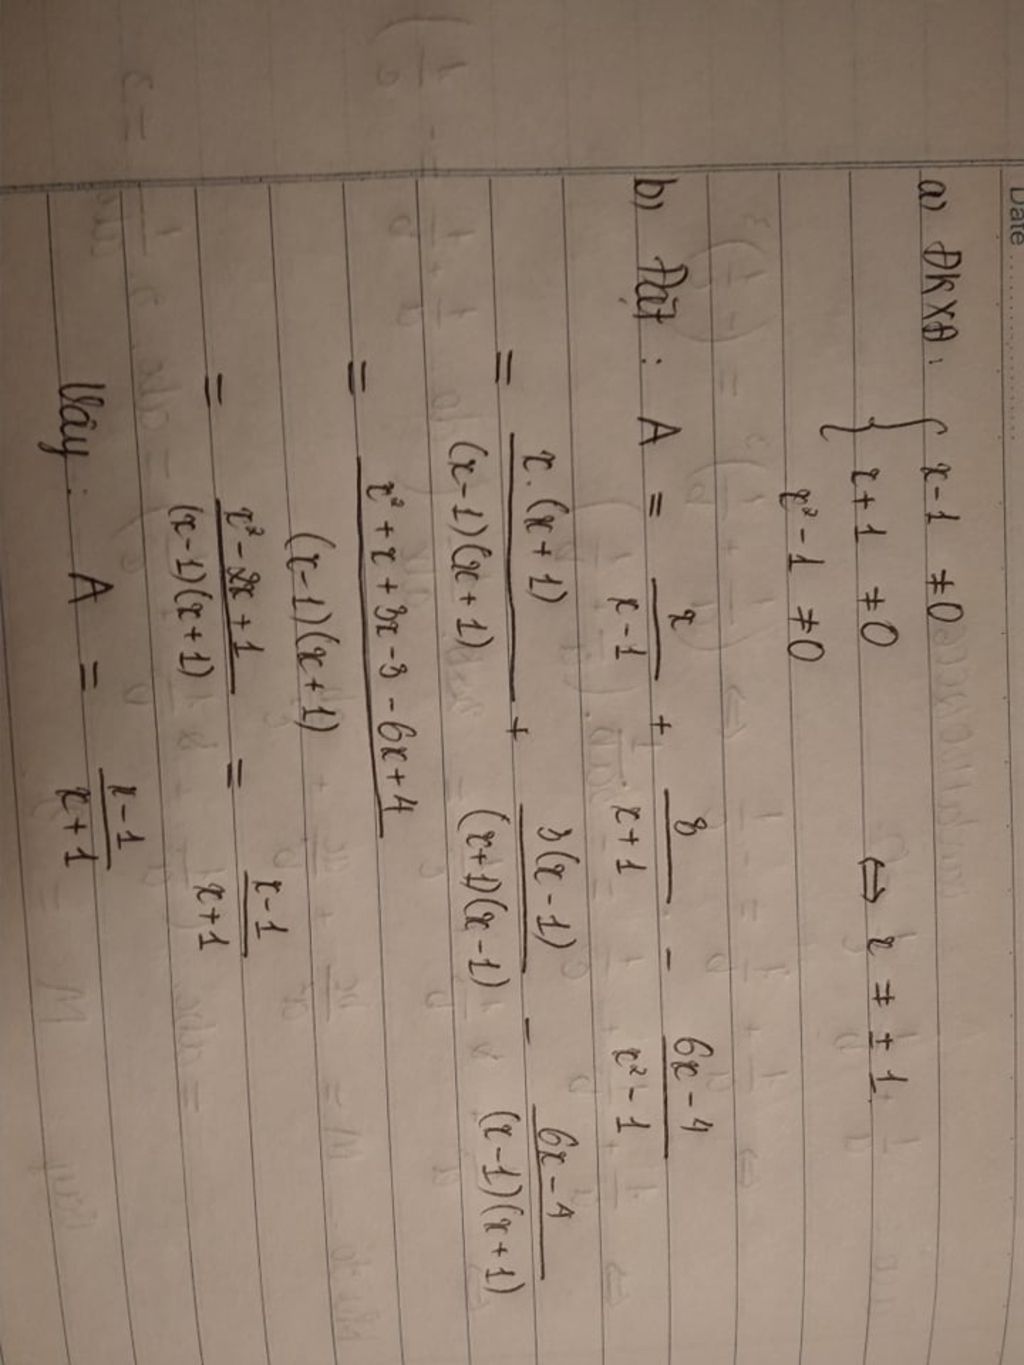 Date
a) ĐKXĐ: { x-1 ≠0
{ x+1 ≠0 ⇔ x ≠ ±1
x²-1 ≠0
b) Đặt: A = x/(x-1) + 3/(x+1) - (6x-4)/(x²-1)
= x.(x+1)/((x-1)(x+1)) + 3(x-1)/((x+1)(x-1)) - (6x-4)/((x-1)(x+1))
= (x²+x+3x-3-6x+4)/((x-1)(x+1))
= (x²-2x+1)/((x-1)(x+1)) = (x-1)/(x+1)
Vậy: A = (x-1)/(x+1)